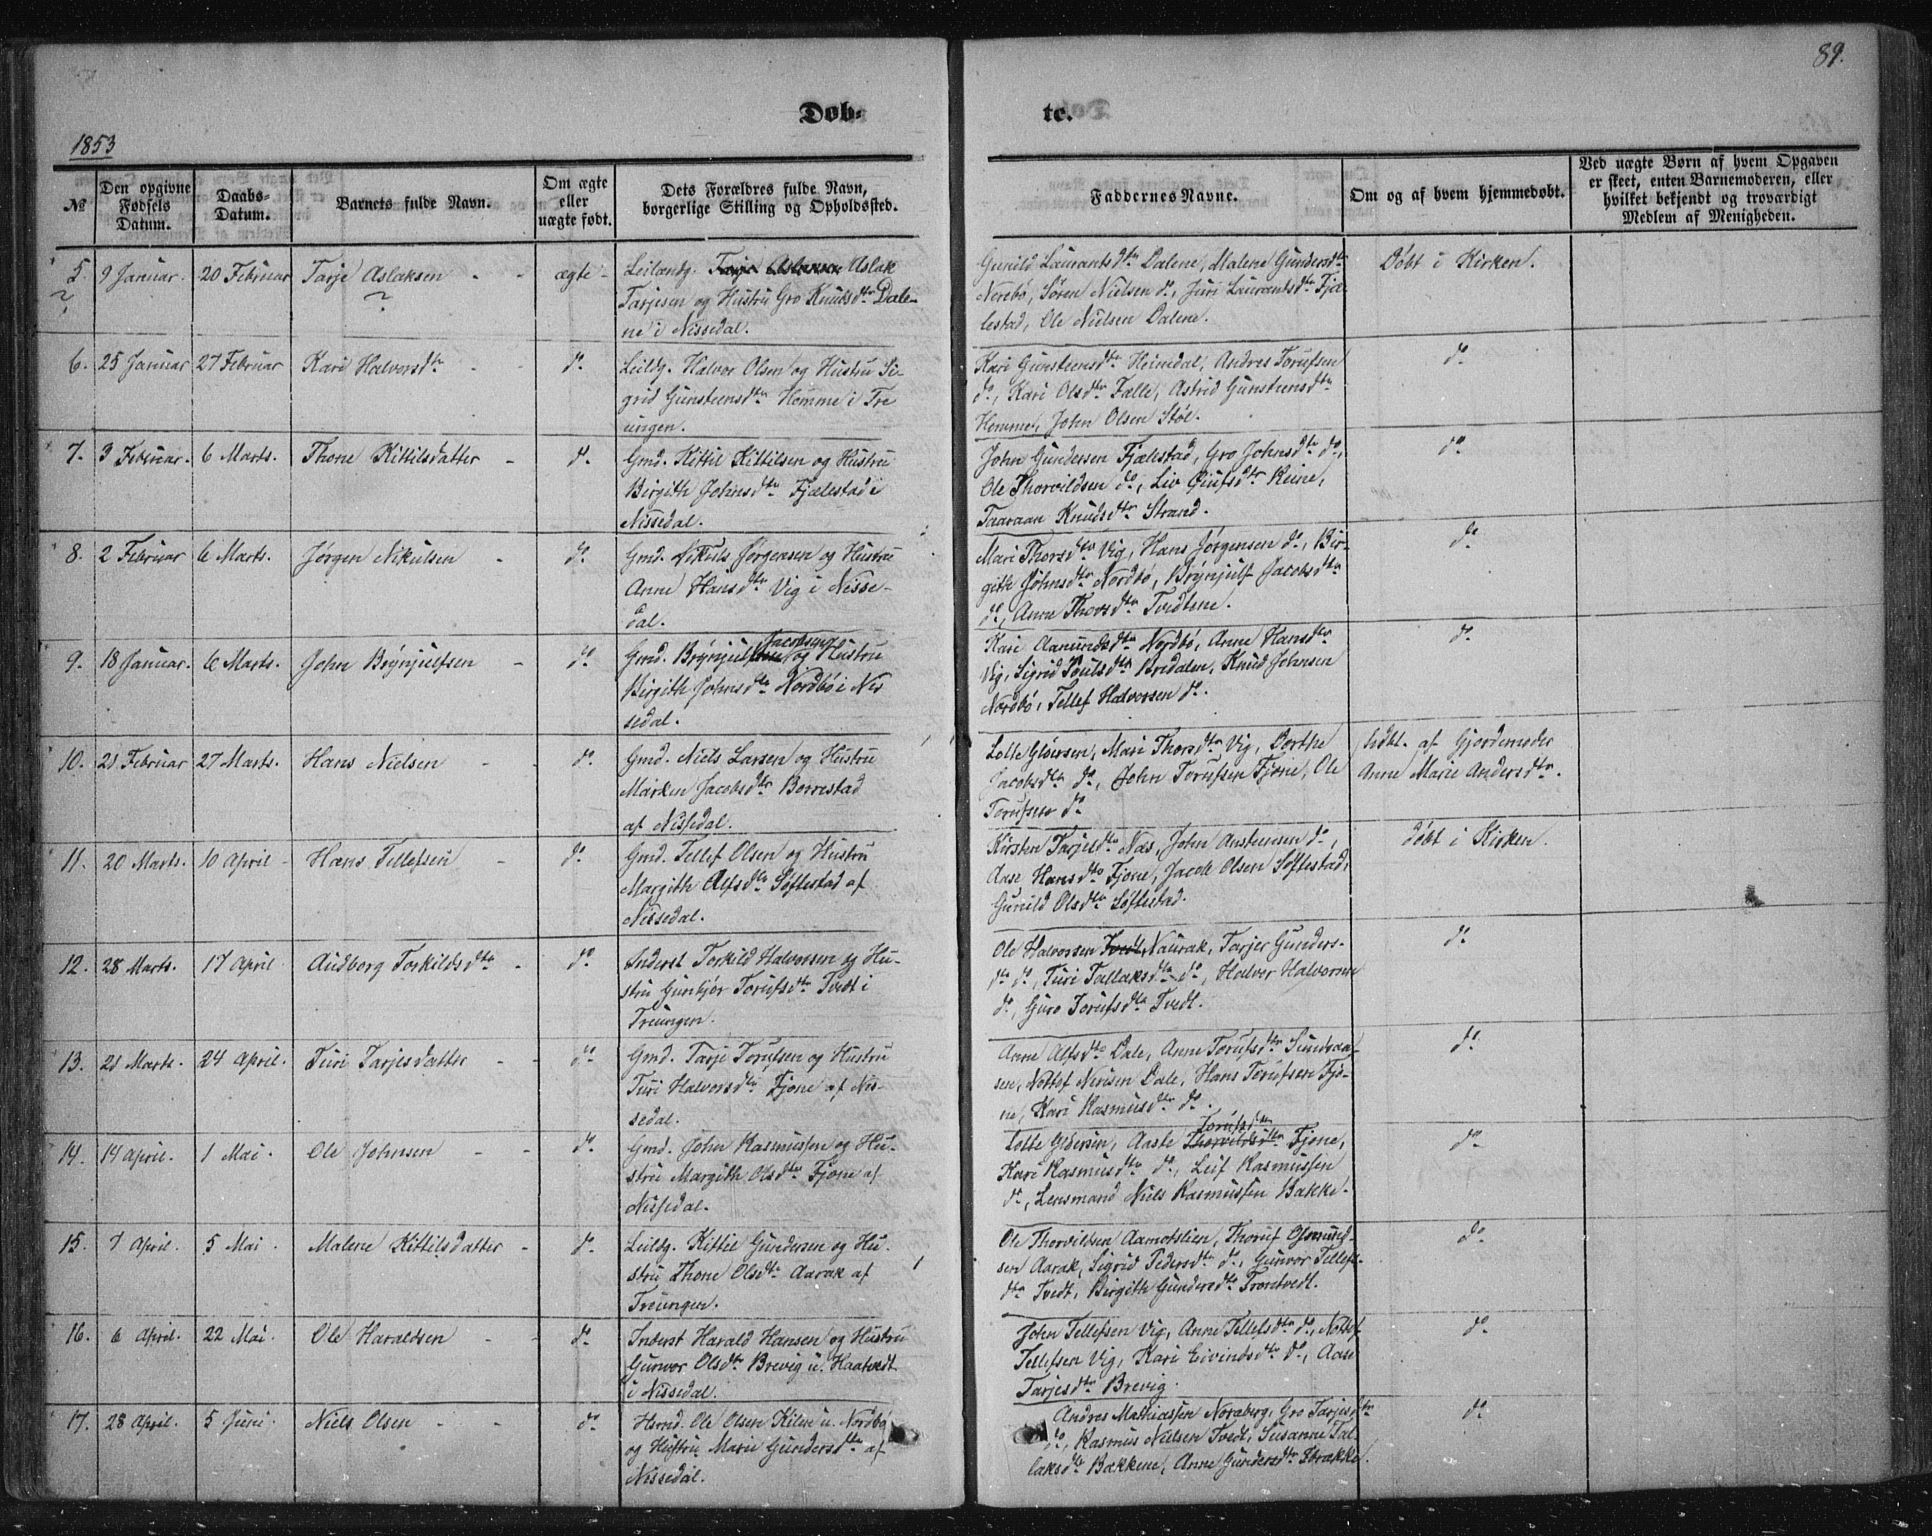 89.
Døb-
te.
1853
№
Den opgivne Fødsels Datum.
Daabs-Datum.
Barnets fulde Navn.
Om ægte eller uægte født.
Dets Forældres fulde Navn, borgerlige Stilling og Opholdssted.
Faddernes Navne.
Om og af hvem hjemmedøbt.
Ved uægte Børn af hvem Opgaven er skeet, enten Barnemoderen, eller hvilket bekjendt og troværdigt Medlem af Menigheden.
5. 9 Januar. 20 Februar Tarje Aslaksen - - ægte -
Leilændg. Aslak
Tarjesen og Hustru Gro Knudsdtr Dale-
ne i Nissedal.
Gunild Laurantsdtr Dalene, Malene Gundersdtr
Nerebö, Sören Nielsen do, Juri Laurantsdtr Fjæ-
lestad, Ole Nielsen Dalene.
Döbt i Kirken.
6. 25 Januar 27 Februar Kari Halvorsdtr - - do.
Leildg. Halvor Olsen og Hustru Si-
grid Gunsteensdtr Hemme i Tre
ungen.
Kari Gunsteensdtr Heimdal, Andres Torufsen
do, Kari Olsdtr Falle, Astrid Gunsteensdtr
Hemme, John Olsen Stöl.
do
7. 3 Februar. 6 Marts. Thone Kittilsdatter - do.
Gmd. Kittil Kittilsen og Hustru
Birgith Johnsdtr Fjælestad i
Nissedal.
John Gundersen Fjælestad, Gro Johnsdtr do,
Ole Thorvildsen do, Liv Giufsdtr Reine,
Taaraan Knudsdtr Strand.
do
8. 2 Februar 6 Marts. Jörgen Nikulsen - do.
Gmd. Nikuls Jörgensen og Hustru
Anne Hansdtr Vig i Nisse-
dal.
Mari Thorsdtr Vig, Hans Jörgensen do, Bir-
gith Johnsdtr Nordbö, Brynjulf Jacobsdtr
do, Anne Thorsdtr Tvedtene.
do
9. 18 Januar. 6 Marts. John Brynjulfsen - do
Gmd. Brynjulf Jacobsen og Hustru
Birgith Johnsdtr Nordbö i Nis
sedal.
Kari Aamundsdtr Nordbö, Anne Hansdtr
Vig, Sigrid Poulsdtr Bredalen, Knud Johnsen
Nordbö, Tellef Halvorsen do.
do
10. 21 Februar 27 Marts. Hans Nielsen - - do.
Gmd. Niels Larsen og Hustru
Marken Jacobsdtr Borrestad
af Nissedal.
Lotte Glöersen, Mari Thorsdtr Vig, Dorthe
Jacobsdtr do, John Torufsen Fjone, Ole
Torufsen do
hdbt. af Gjordemoder
Anne Marie Andersdtr.
11. 20 Marts. 10 April - Hans Tellefsen - do.
Gmd. Tellef Olsen og Hustru
Margith Alfsdtr Söftestad af
Nissedal.
Kirsten Tarjesdtr Næs, John Anstensen do,
Aase Hansdtr Fjone, Jacob Olsen Söftestad,
Gunild Olsdtr Söftestad.
döbt i Kirken.
12. 28 Marts. 17 April Audborg Torkildsdtr - do.
Inderst Torkild Halvorsen og Hu-
stru Gunbjör Torufsdtr Tvedt i
Treungen.
Ole Halvorsen Naurak, Tarjer Gunders-
dtr do, Turi Tallaksdtr do, Halvor Halvorsen
do, Guro Torufsdtr Tvedt.
do
13. 21 Marts 24 April. Turi Tarjesdatter - - do
Gmd. Tarje Torufsen og Hustru
Turi Halvorsdtr Fjone af Nis-
sedal.
Anne Alfsdtr Dale, Anne Torufsdtr Sundsaa-
sen, Nottef Nirisen Dale, Hans Torufsen Fjo-
ne, Kari Rasmusdtr do.
do
14. 14 April. 1 Mai. Ole Johnsen - - do
Gmd. John Rasmussen og Hu-
stru Margith Olsdtr Fjone af
Nissedal.
Lotte Glöersen, Aaste Torufsdtr Fjone,
Kari Rasmusdtr do, Leif Rasmussen
do, Lensmand Niels Rasmussen Bakke.
do
15. 7 April. 5 Mai. Malene Kittilsdatter - do.
Leildg. Kittil Gundersen og Hu-
stru Thone Olsdtr Aarak af
Treungen.
Ole Thorvildsen Aamotslien, Thoruf Osmund-
sen Aarak, Sigrid Pedersdtr do, Gunvor Tellefs-
dtr Tvedt, Birgith Gundersdtr Trontvedt.
do
16. 6 April. 22 Mai. Ole Haraldsen - - do
Inderst Harald Hansen og Hustru
Gunvor Olsdtr Brevig u. Haatvedt
i Nissedal.
John Tellefsen Vig, Anne Tellefsdtr do, Nottef
Tellefsen Vig, Kari Eivindsdtr do, Aase
Tarjesdtr Brevig.
do
17. 28 April. 5 Juni. Niels Olsen - - do
Hsmd. Ole Olsen Kilen u. Nordbö
og Hustru Marie Gundersdtr af
Nissedal.
Andres Mathiassen Noraberg, Gro Tarjesdtr
do, Rasmus Nielsen Tvedt, Susanne Tal
laksdtr Bakkene, Anne Gundersdtr Strakke.
do